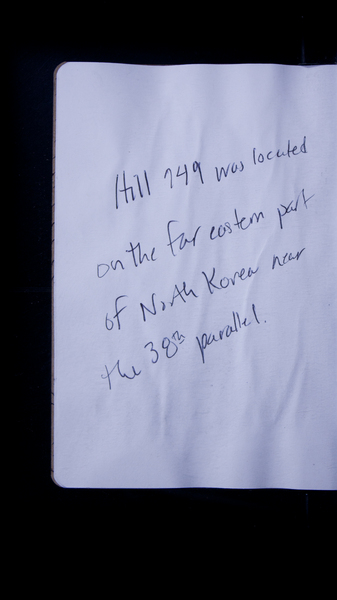 Hill 749 was located
on the far eastern part
of North Korea near
the 38th parallel.